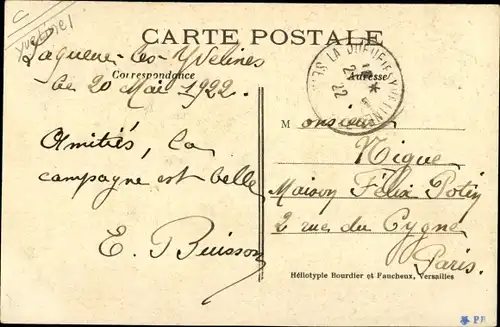 C
Yvelines
CARTE POSTALE
Laqueue-les-Yvelines
Correspondance
Adresse
le 20 Mai 1922.
LA QUEUE-LES-YVELINES
22
Monsieur
Amitiés, la
Nigue
campagne est belle
Maison Félix Potin
2 rue du Cygne
E. Buisson
Paris.
Héliotypie Bourdier et Faucheux, Versailles